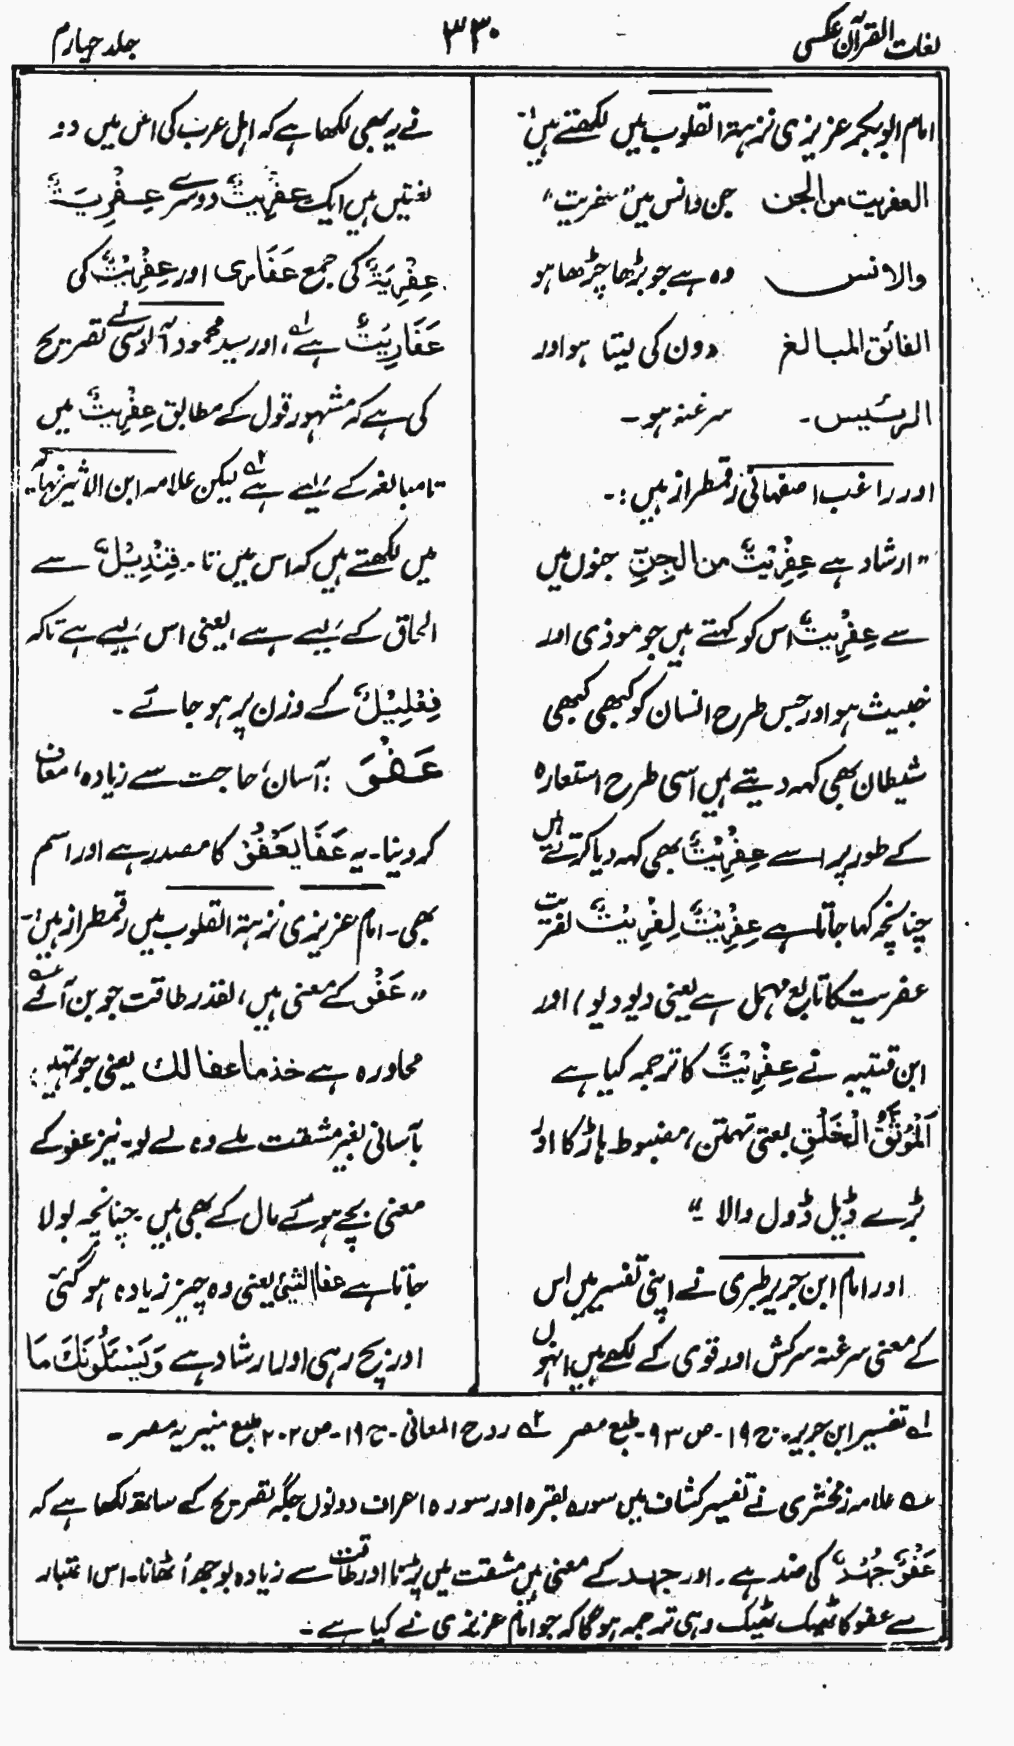 لغات القرآن عکسی
۳۳۰
جلد چہارم
امام ابوبکر عزیزی نزہۃ القلوب میں لکھتے ہیں:-
العفریت من الجن جن وانس میں "عفریت"
والانس وہ ہے جو بڑھا چڑھا ہو
الفائق المبالغ دون کی لیتا ہو اور
الرئیس۔ سرغنہ ہو۔
اور راغب اصفہانی رقمطراز ہیں:-
"ارشاد ہے عِفْرِیْتٌ من الجِنِّ جنوں میں
سے عِفْرِیتٌ اس کو کہتے ہیں جو موذی اور
خبیث ہو اور جس طرح انسان کو کبھی کبھی
شیطان بھی کہہ دیتے ہیں اسی طرح استعارہ
کے طور پر اسے عِفْرِیْتٌ بھی کہہ دیا کرتے ہیں
چنانچہ کہا جاتا ہے عِفْرِیْتٌ نِفْرِیْتٌ نفریت
عفریت کا تابع مہمل ہے یعنی دیو دیو) اور
ابن قتیبہ نے عِفْرِیْتٌ کا ترجمہ کیا ہے
اَلْمُوَثَّقُ الْخَلْقِ یعنی تہمتن، مضبوط ہاڑ کا اور
بڑے ڈیل ڈول والا"
اور امام ابن جریر طبری نے اپنی تفسیر میں اس
کے معنی سرغنہ سرکش اور قوی کے لکھے ہیں، انہوں
نے یہ بھی لکھا ہے کہ اہل عرب کی اس میں دو
لغتیں ہیں ایک عِفْرِیْتٌ دوسرے عِفْرِیَۃٌ
عِفْرِیَۃٌ کی جمع عَفَارِی اور عِفْرِیْتٌ کی
عَفَارِیْتُ ہے لہ، اور سید محمود آلوسی نے تصریح
کی ہے کہ مشہور قول کے مطابق عِفْرِیْتٌ میں
تا مبالغہ کے لیے ہے ۲ لیکن علامہ ابن الاثیر نہایہ
میں لکھتے ہیں کہ اس میں تا۔ قِنْدِیْلٌ سے
الحاق کے لیے ہے، یعنی اس لیے ہے تاکہ
فِعْلِیْلٌ کے وزن پر ہو جائے۔
عَفْوَ: آسان، حاجت سے زیادہ، معاف
کر دینا۔ یہ عَفَا یَعْفُوْ کا مصدر ہے اور اسم
بھی۔ امام عزیزی نزہۃ القلوب میں رقمطراز ہیں:-
"عَفْو کے معنی ہیں، بقدر طاقت جو بن آئے ۳
محاورہ ہے خذ ما عفا لك یعنی جو تمہیں
بآسانی بغیر مشقت ملے وہ لے لو۔ نیز عفو کے
معنی بچے ہوئے مال کے بھی ہیں۔ چنانچہ بولا
جاتا ہے عفا الشئ یعنی وہ چیز زیادہ ہو گئی
اور بچ رہی اور ارشاد ہے وَیَسْئَلُوْنَكَ مَا
لہ تفسیر ابن جریر۔ ج ۱۹۔ ص ۹۳۔ طبع مصر ۲ روح المعانی۔ ج ۱۹۔ ص ۲۰۲ طبع منیریہ مصر۔
۳ علامہ زمخشری نے تفسیر کشاف میں سورہ بقرہ اور سورہ اعراف دونوں جگہ تصریح کے ساتھ لکھا ہے کہ
عَفْوٌ جُہْدٌ کی ضد ہے۔ اور جہد کے معنی ہیں مشقت میں پڑنا اور طاقت سے زیادہ بوجھ اُٹھانا۔ اس اعتبار
سے عفو کا ٹھیک ٹھیک وہی ترجمہ ہوگا کہ جو امام عزیزی نے کیا ہے :-